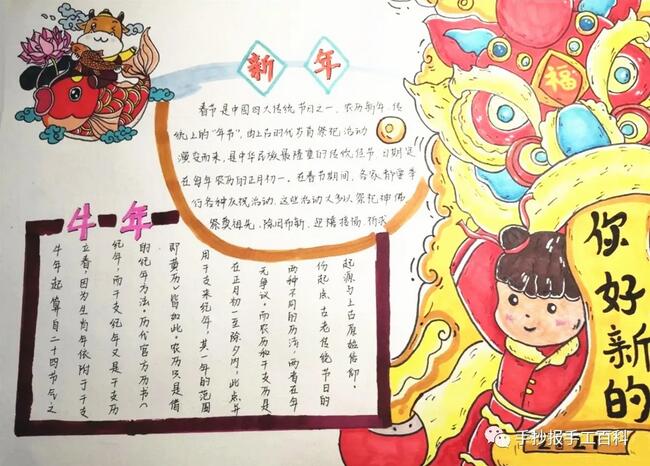 新年
春节是中国四大传统节日之一、农历新年、传
统上的“年节”,由上古时代岁首祭祀活动
演变而来,是中华民族最隆重的传统佳节,日期定
在每年农历的正月初一。在春节期间,各家都要举
行各种庆祝活动,这些活动大多以祭祀神佛
祭奠祖先、除旧布新、迎禧接福、祈求
牛年
牛年起算自二十四节气之
立春,因为生肖年依附于干支
纪年,而干支纪年又是干支历
的纪年方法。历代官方历书(
即黄历)皆如此。农历只是借
用干支来纪年,其一年的范围
在正月初一至除夕内,此点并
无争议。而农历和干支历是
两种不同的历法,两者在年
份起底、在老传统节日的
起源与上古原始信仰,
福
你好新的
2021
手抄报手工百科